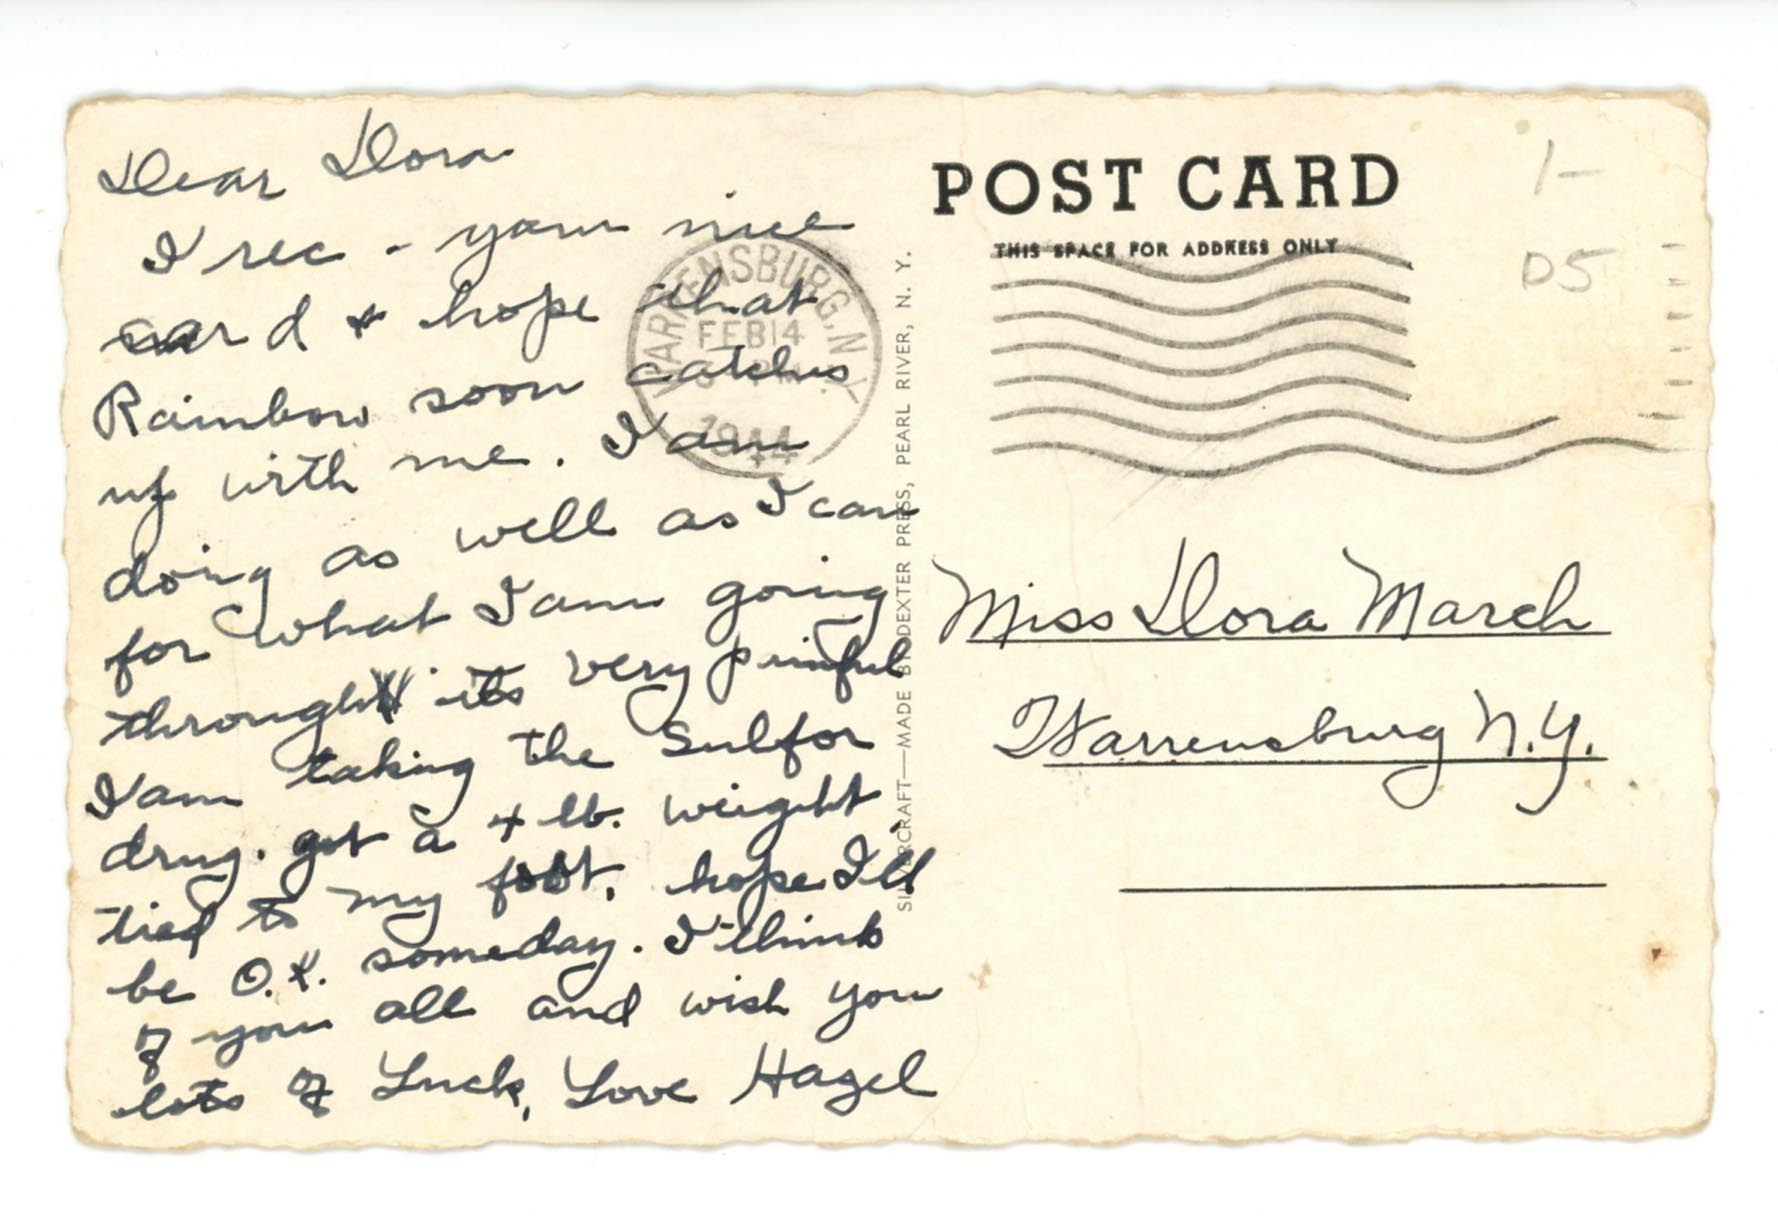 Dear Dora
I rec - your nice
card & hope that
Rainbow soon catches
up with me. I am
doing as well as I can
for what I am going
through its very painful
I am taking the Sulfor
drug. got a 4 lb. weight
tied to my foot. hope I'll
be O.K. someday. I think
of you all and wish you
lots of Luck, Love Hazel
WARRENSBURG, N.Y.
FEB 14
1944
SILVERCRAFT—MADE BY DEXTER PRESS, PEARL RIVER, N. Y.
POST CARD
THIS SPACE FOR ADDRESS ONLY
1-
D5
Miss Dora March
Warrensburg N.Y.